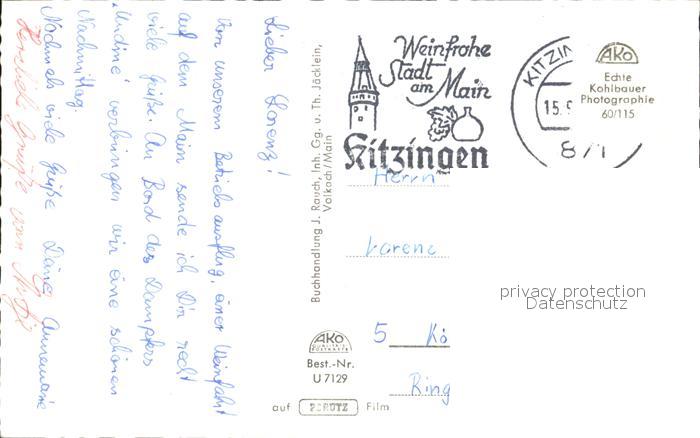 Lieber Lorenz!
Von unserem Betriebsausflug, einer Weinfahrt
auf dem Main sende ich Dir recht
viele Grüße. An Bord des Dampfers
"Undine" verbringen wir eine schönen
Nachmittag.
Nochmals viele Grüße Deine Annemarie
Herzliche Grüße von
Buchhandlung J. Rauch, Inh. Gg. u. Th. Jäcklein,
Volkach/Main
Weinfrohe
Stadt
am Main
Kitzingen
KITZIN
15.9
871
AKO
Echte
Kohlbauer
Photographie
60/115
Herrn
Lorenz
5 Kö
Ring
privacy protection
Datenschutz
AKO
QUALITÄTS
POSTKARTE
Best.-Nr.
U 7129
auf PERUTZ Film